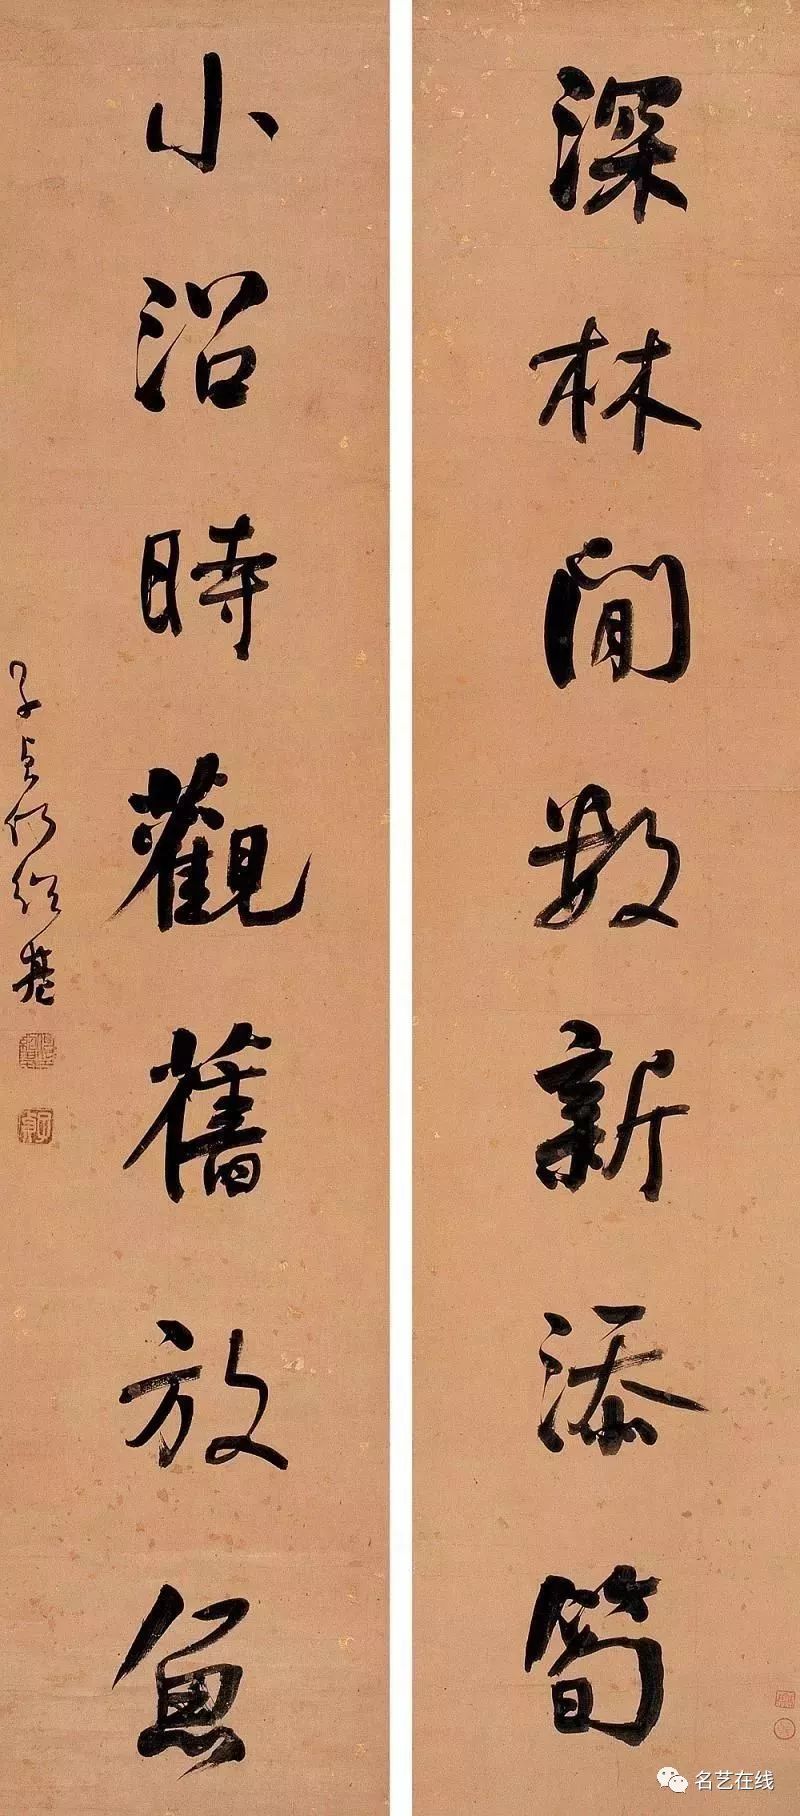 深林閒數新添筍
小沼時觀舊放魚
子貞何紹基
子貞
名艺在线